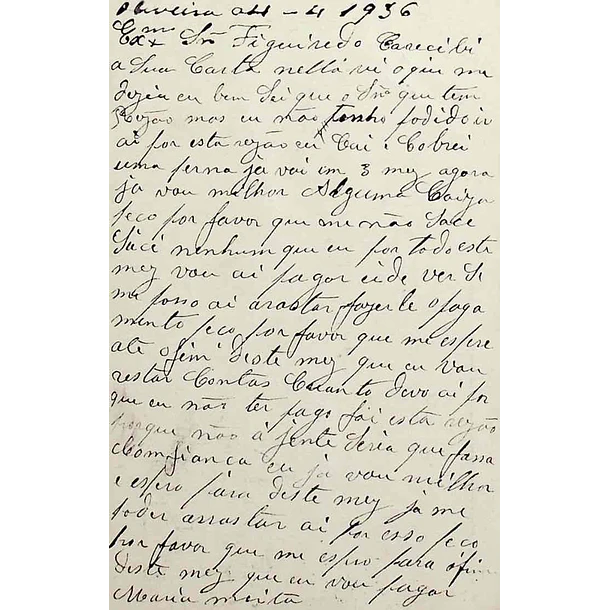 Oliveira 24 - 4 1936
Exmº Snr Figueiredo Carecibi
a Sua Carta nella vi oqui me
dezia eu bem Sei que o Snº que tem
Rezão mas eu não tenho podido ir
ai por esta rezão eu Cai e Cobrei
uma perna ja vai im 3 mez agora
ja vou milhor Alguma Coiza
peco por favor que me não Sace
Saci nenhum que eu por todo este
mez vou ai pagar eide ver Si
me posso ai arastar fazerle o paga
mento peco por favor que me espre
ate o fim deste mez que eu vou
restar Contas Cuanto devo ai por
que eu não ter pago foi esta rezão
porque não a jente Seria que fassa
Comfianca eu ja vou milhor
e espro para deste mez ja me
poder arrastar ai por esso peco
por favor que me espro para o fim
deste mez que eu vou pagar
Maria moita